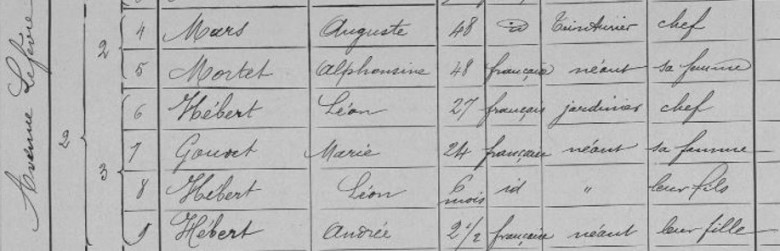 Avenue Lefèvre
2
2
4 Mars Auguste 48 id Teinturier chef
5 Mortet Alphonsine 48 française néant sa femme
3
6 Hébert Léon 27 français jardinier chef
7 Marie 24 française néant sa femme
8 Hébert Léon 6 mois id " leur fils
9 Hébert Andrée 2 1/2 française néant leur fille